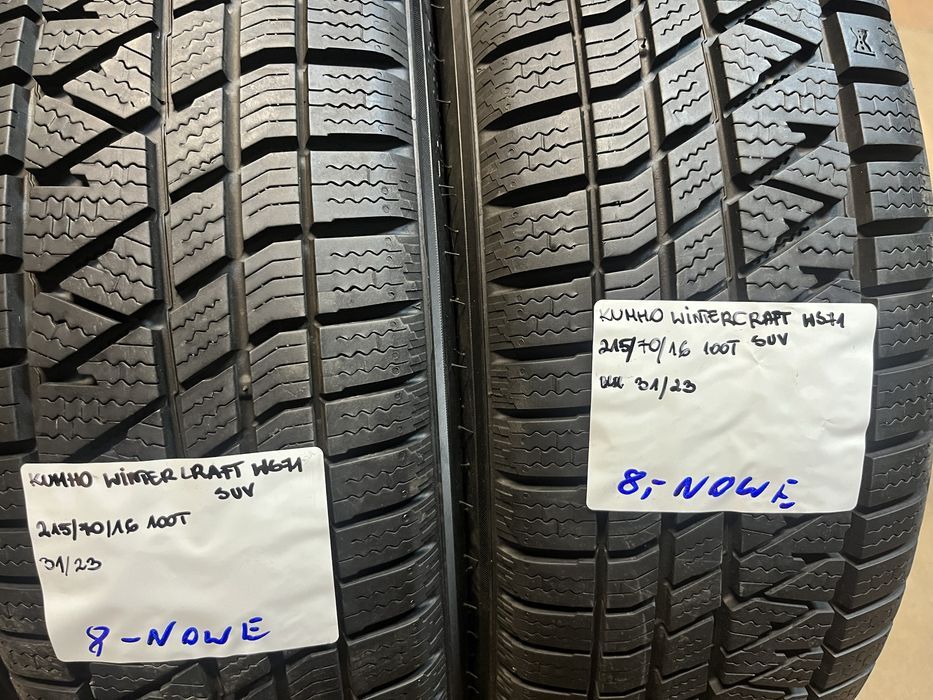 KUMHO WINTERCRAFT WS71
SUV
215/70/16 100T
31/23
8-NOWE
KUMHO WINTERCRAFT WS71
215/70/16 100T SUV
31/23
8,- NOWE